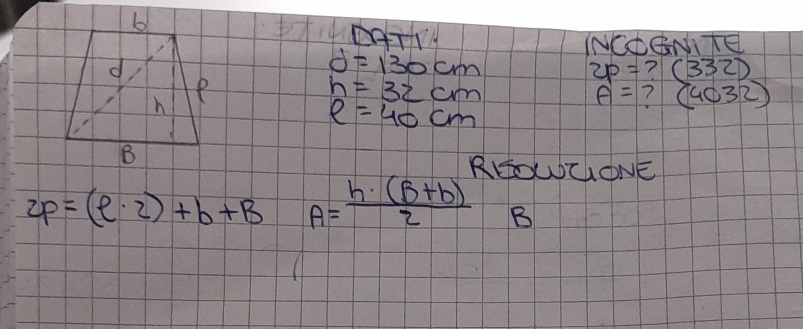 b
DATI
INCOGNITE
d=130 cm
2p=? (332)
d
h = 32 cm
A=? (4032)
h
l
l = 40 cm
B
RISOLUZIONE
2p=(l·2)+b+B
A= h·(B+b) / 2
B